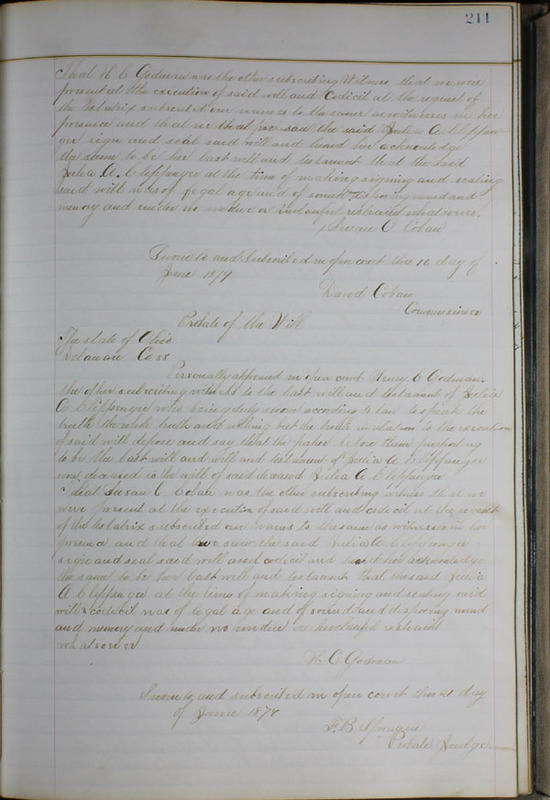 211
That H C Godman was the other subscribing Witness that we were
present at the execution of said will and Codicil at the request of
the testatrix subscribed our names to the same as witnesses in her
presence and that we saw the said Julia A Clippin
ger sign and seal said will and heard her acknowledge
the same to be her last will and testament that the said
Julia A. Clippinger at the time of making signing and sealing
said will was of legal age and of sound disposing mind and
memory and under no undue or unlawful restraint whatsoever.
Susan C Coban
Sworn to and Subscribed in open court this 16 day of
June 1879
David Coban
Commissioner
Probate of the Will
The State of Ohio
Delaware Co ss
Personally appeared in open court Henry C Godman
the other subscribing witness to the last will and testament of Julia
A Clippinger who being duly sworn according to law to speak the
truth the whole truth and nothing but the truth in relation to the execution
of said will depose and say that the paper before them purporting
to be the last will and will and testament of Julia A Clippinger
now deceased is the will of said deceased Julia A Clippinger
That Susan C Coban was the other subscribing witness that we
were present at the execution of said will and codicil at the request
of the testatrix subscribed our names to the same as witnesses in her
presence and that we saw the said Julia A Clippinger
sign and seal said will and codicil and heard her acknowledge
the same to be her last will and testament that the said Julia
A Clippinger at the time of making signing and sealing said
will & codicil was of legal age and of sound and disposing mind
and memory and under no undue or unlawful restraint
whatsoever
H C Godman
Sworn to and subscribed in open court this 21 day
of June 1879
F. B. Sprague
Probate Judge